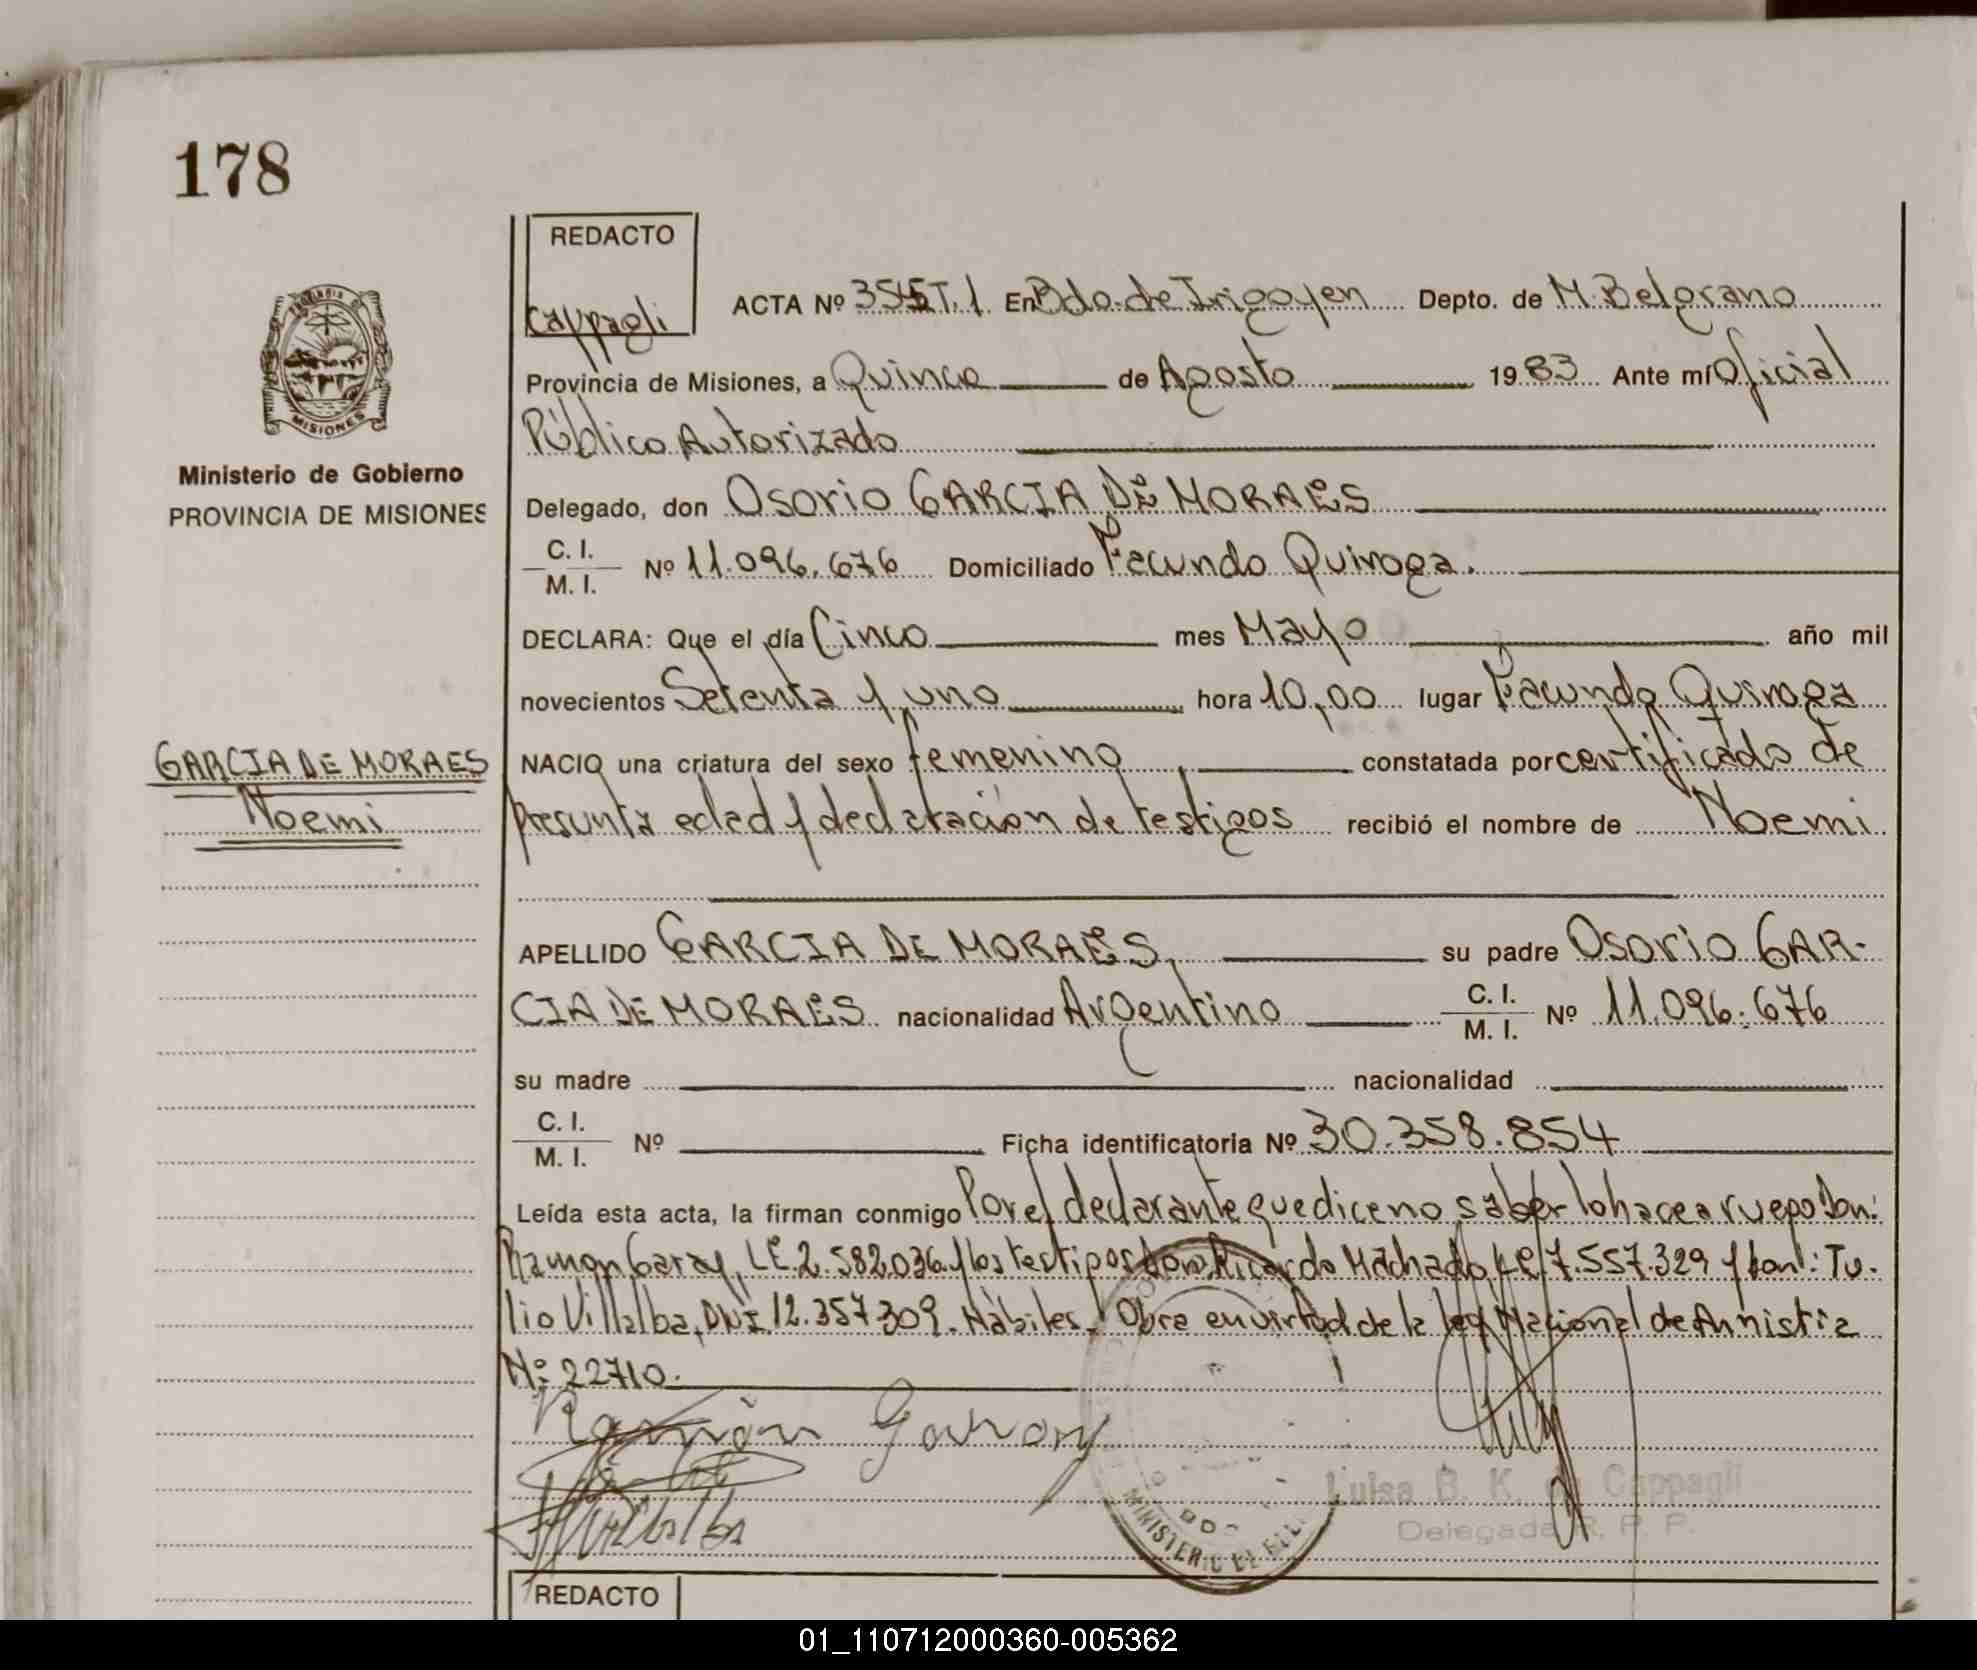 178
REDACTO
Cappagli
ACTA Nº T.1 En Bdo. de Irigoyen Depto. de M. Belgrano
Provincia de Misiones, a Quince de Agosto 1983 Ante mí Oficial
Público Autorizado
Delegado, don Osorio GARCIA DE MORAES
C. I.
M. I. Nº 11.096.676 Domiciliado Facundo Quiroga.
DECLARA: Que el día Cinco mes Mayo año mil
novecientos Setenta y uno hora 10,00 lugar Facundo Quiroga
NACIO una criatura del sexo femenino constatada por certificado de
presunta edad y declaración de testigos recibió el nombre de Noemi
APELLIDO GARCIA DE MORAES, su padre Osorio GAR-
CIA DE MORAES nacionalidad Argentino C. I.
M. I. Nº 11.096.676
su madre nacionalidad
C. I.
M. I. Nº Ficha identificatoria Nº 30.358.854
Leída esta acta, la firman conmigo Por el declarante que dice no saber lo hace a ruego Don:
Ramon Garay, LE. 2.582.036 y los testigos don: Ricardo Machado LE 7.557.329 y don: Tu-
lio Villalba, DNI. 12.357.309. Hábiles. Obra en virtud de la ley Nacional de Amnistia
Nº 22710.
Ramón Garay
Villalba
MINISTERIO
Luisa B. K. de Cappagli
Delegada R. P. P.
REDACTO
PROVINCIA DE
MISIONES
Ministerio de Gobierno
PROVINCIA DE MISIONES
GARCIA DE MORAES
Noemi
01_110712000360-005362